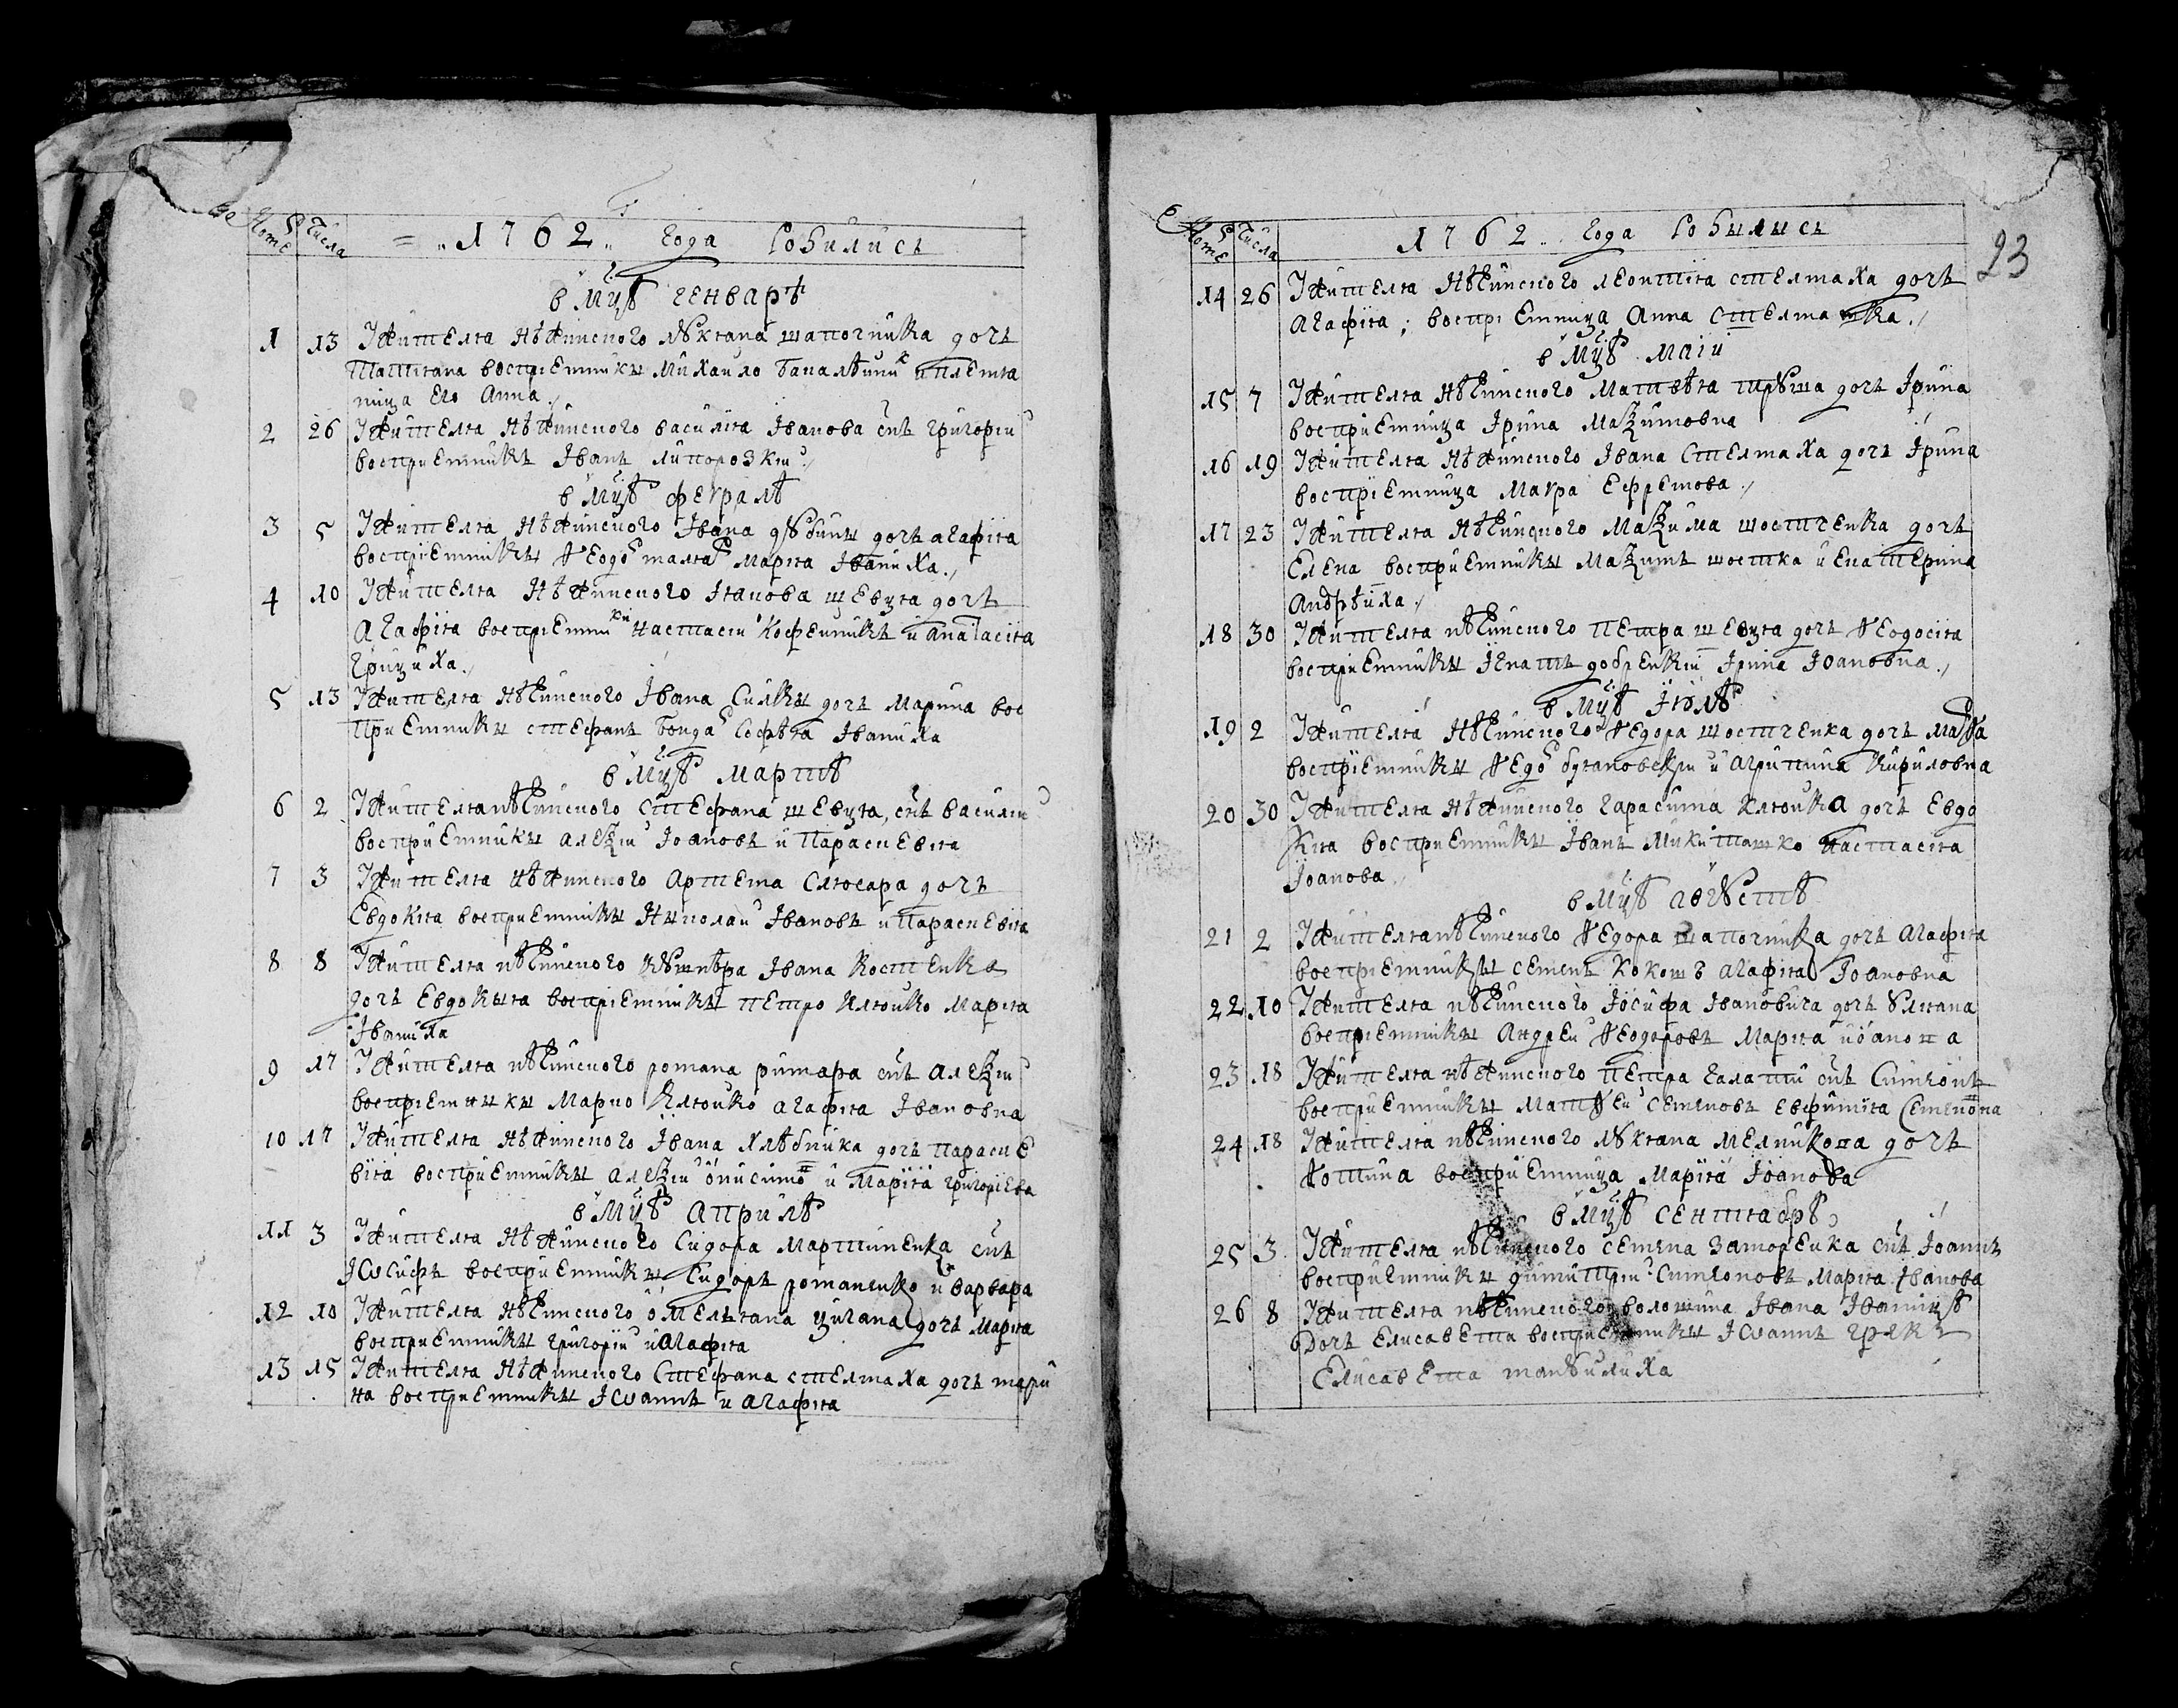 Числа
1762 года Родились
в мцѣ генварѣ
1 13 Жителя нѣжинского Лукяна шапочника дочь
Татияна восприемники Михайло и племя
ница его Анна
2 26 Жителя нѣжинского василия Iванова снъ григорий
восприемникъ Iванъ
в мцѣ февралѣ
3 5 Жителя нѣжинского Iвана дочь агафия
восприемники Ѳеодо Мария Iваниха
4 10 Жителя нѣжинского Iякова шевця дочь
Агафия восприемники и анастасия
грициха
5 13 Жителя нѣжинского Iвана Силки дочь Марина вос
приемники стефанъ бонда Софѣя Iваниха
в мцѣ мартѣ
6 2 Жителя нѣжинского Стефана шевця снъ василий
восприемники алеѯий Iоановъ и Параскевия
7 3 Жителя нѣжинского Артема Слюсара дочь
Евдокия восприемники Николай Iвановъ и параскевия
8 8 Жителя нѣжинского кушнѣра Iвана костенка
дочь Евдокыя восприемники петро Клюйко Мария
Iваниха
9 17 Жителя нѣжинского романа римара снъ алеѯий
восприемники Марко Клюйко агафия Iвановна
10 17 Жителя нѣжинского Iвана хлѣбника дочь параске
вия восприемники алеѯий онисимо и Мария григориева
в мцѣ априлѣ
11 3 Жителя нѣжинского Сидора Мартиненка снъ
Iѡсифъ восприемники Сидоръ романенко и варвара
12 10 Жителя нѣжинского омеляна цигана дочь Мария
восприемники григорий и агафия
13 15 Жителя нѣжинского Стефана стелмаха дочь мари
на восприемники Iѡаннъ и агафия
Числа
1762 года Родились
23
14 26 Жителя нѣжинского леонтия стелмаха дочь
агафия; восприемница Анна Стелмашка
в мцѣ маiи
15 7 Жителя нѣжинского Матвѣя дочь Iрина
восприемница Iрина Маѯимовна
16 19 Жителя нѣжинского Iвана Стелмаха дочь Iрина
восприемница Мавра Ефремова
17 23 Жителя нѣжинского Маѯима шостченка дочь
Елена восприемники Маѯимъ шостка и екатерина
андрѣиха
18 30 Жителя нѣжинского петра шевця дочь Ѳеодосия
восприемники Iгнатъ Iрина Iоановна
в мцѣ Iюлѣ
19 2 Жителя нѣжинского Ѳедора шостченка дочь Марѳа
восприемники Ѳедо и агрипина Кириловна
20 30 Жителя нѣжинского гарасима клюйка дочь Евдо
кия восприемники Iванъ Микиташко настасия
Iоанова
в мцѣ августѣ
21 2 Жителя нѣжинского Ѳедора шапочника дочь агафия
восприемники семенъ Кокошъ агафия Iоановна
22 10 Жителя нѣжинского Iосифа Iвановича дочь Улияна
восприемники Андрей Ѳеодоровъ Мария иоанова
23 18 Жителя нѣжинского петра снъ Симеонъ
восприемники Матѳей Семеновъ евфимия Семенова
24 18 Жителя нѣжинского Лукяна мелникова дочь
Ѳотина восприемница Мария Iоанова
в мцѣ сентябрѣ
25 3 Жителя нѣжинского семена заморенка снъ Iоаннъ
восприемники димитрий Симеоновъ Мария Iванова
26 8 Жителя нѣжинского волошина Iвана
Дочь Елисавета восприемники Iѡаннъ грекъ
Елисавета